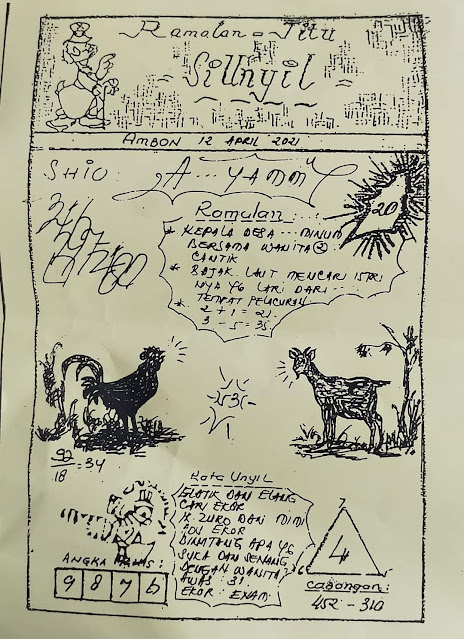 Ramalan = Jitu
SiUnyil
AMBON 12 APRIL 2021
SHIO: A...YAMMM
20
Ramalan
* KEPALA DESA ... MINUM
BERSAMA WANITA ②
CANTIK
* BAJAK LAUT MENCARI ISTRI
NYA YG LARI DARI
* TEMPAT PELACURAN
2 + 1 = 21
3 - 5 = 35
92/18 = 34
Kata Unyil
GLATIK DAN ELANG
CARI EKOR
DAN MIMI
EKOR
BINATANG APA YG
SUKA DAN SENANG
DENGAN WANITA?
AWAS : 31
EKOR : ENAM
ANGKA
9 8 7 6
7
4
6
Cabangan:
452 - 310